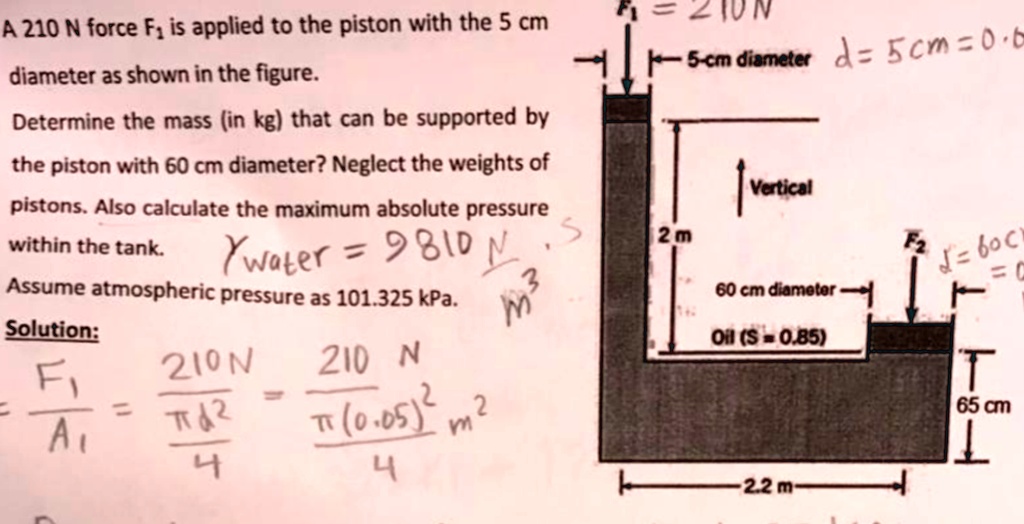 A 210 N force F₁ is applied to the piston with the 5 cm
diameter as shown in the figure.
Determine the mass (in kg) that can be supported by
the piston with 60 cm diameter? Neglect the weights of
pistons. Also calculate the maximum absolute pressure
within the tank.
γwater = 9810 N/m³ . S
Assume atmospheric pressure as 101.325 kPa.
Solution:
= F₁/A₁ = 210N/(πd²/4) = 210 N/(π(0.05)²/4 m²)
F₁ = 210N
5-cm diameter
d = 5cm = 0.0
Vertical
2 m
F₂
60 cm diameter
Oil (S = 0.85)
65 cm
2.2 m